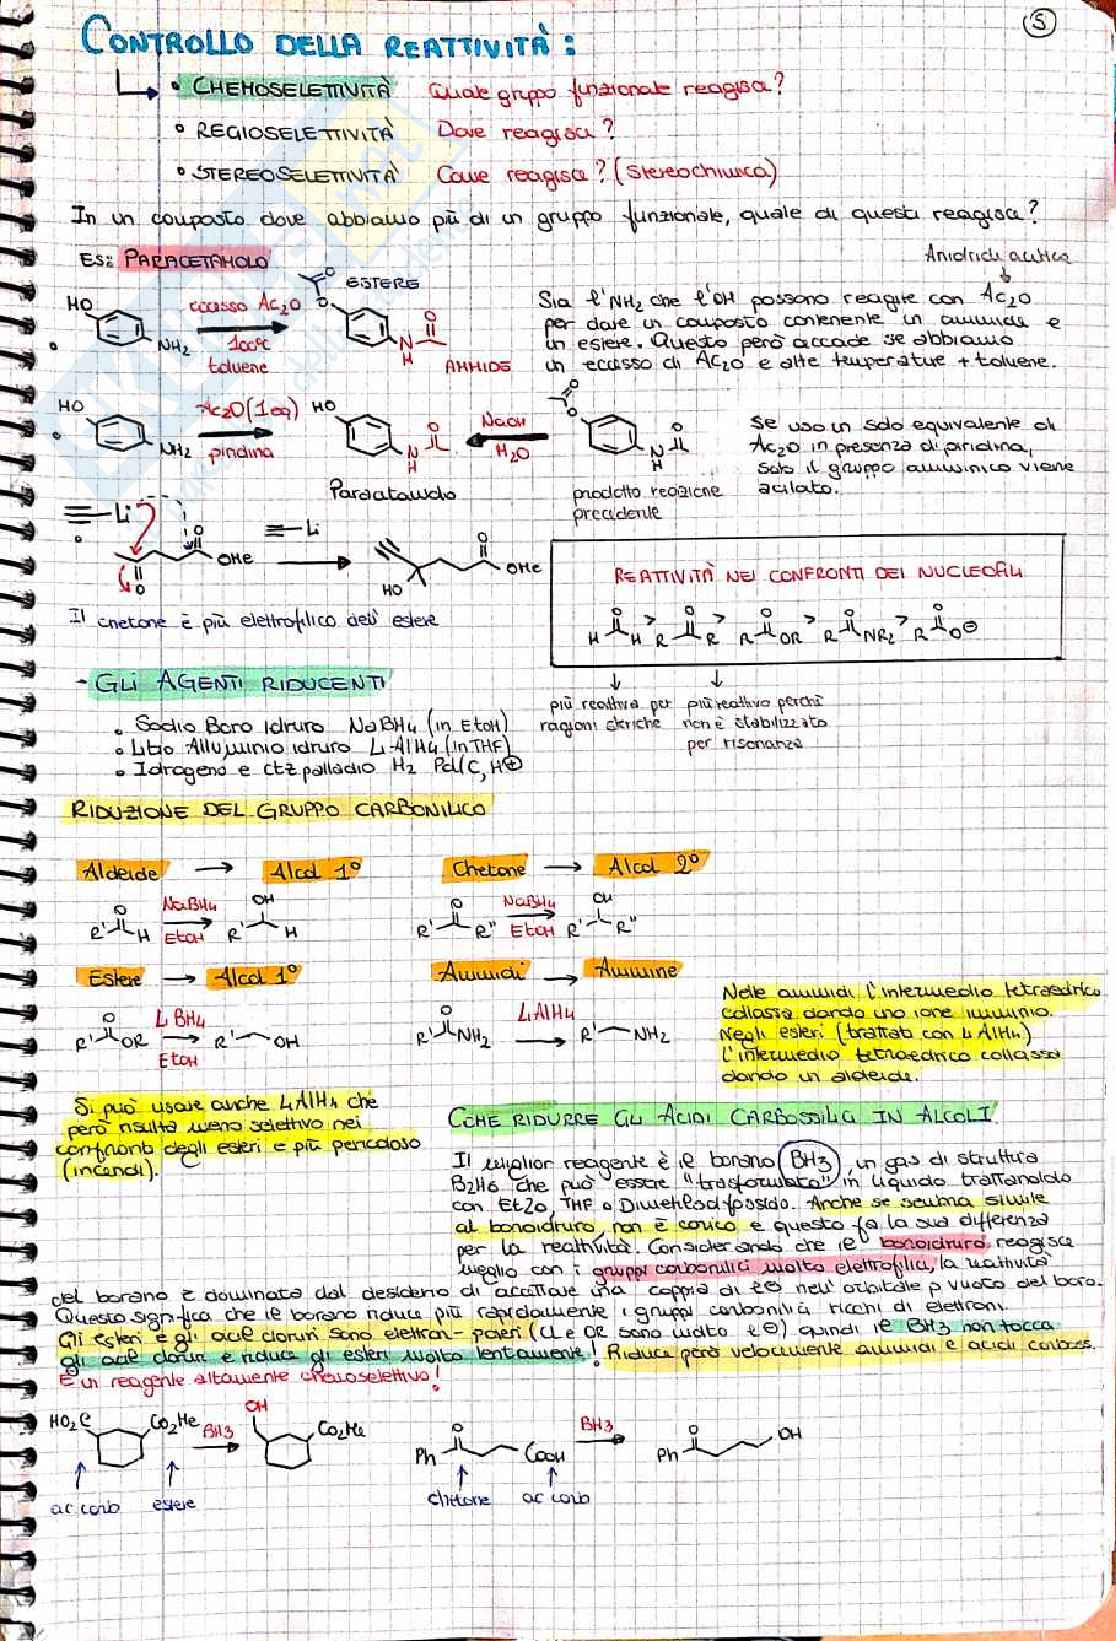 5
CONTROLLO DELLA REATTIVITÀ:
• CHEMOSELETTIVITÀ Quale gruppo funzionale reagisce?
• REGIOSELETTIVITÀ Dove reagisce?
• STEREOSELETTIVITÀ Come reagisce? (Stereochimica)
In un composto dove abbiamo più di un gruppo funzionale, quale di questi reagisce?
ES: PARACETAMOLO
Anidride acetica
HO NH2 eccesso Ac2O 100°C toluene O O ESTERE N H O AMMIDE
Sia l'NH2 che l'OH possono reagire con Ac2O
per dare un composto contenente un ammide e
un estere. Questo però accade se abbiamo
un eccesso di Ac2O e alte temperature + toluene.
HO NH2 Ac2O (1eq) piridina HO N H O NaOH H2O O O N H O
Paracetamolo
prodotto reazione
precedente
Se uso un solo equivalente di
Ac2O in presenza di piridina,
solo il gruppo amminico viene
acilato.
Li O O OMe Li HO O OMe
Il chetone è più elettrofilico dell'estere
REATTIVITÀ NEI CONFRONTI DEI NUCLEOFILI
H O H > R O R > R O OR > R O NR2 > R O O⊖
più reattiva per
ragioni steriche
più reattivo perchè
non è stabilizzato
per risonanza
- GLI AGENTI RIDUCENTI
• Sodio Boro idruro NaBH4 (in EtOH)
• Litio Alluminio idruro LiAlH4 (in THF)
• Idrogeno e ctz palladio H2 Pd/C, H⊕
RIDUZIONE DEL GRUPPO CARBONILICO
Aldeide → Alcol 1° Chetone → Alcol 2°
R' O H NaBH4 EtOH R' OH H R' O R" NaBH4 EtOH R' OH R"
Estere → Alcol 1° Ammidi → Ammine
R' O OR LiBH4 EtOH R' OH R' O NH2 LiAlH4 R' NH2
Nelle ammidi l'intermedio tetraedrico
collassa dando uno ione imminio.
Negli esteri (trattati con LiAlH4)
l'intermedio tetraedrico collassa
dando un aldeide.
Si può usare anche LiAlH4 che
però risulta meno selettivo nei
confronti degli esteri e più pericoloso
(incendi).
COME RIDURRE GLI ACIDI CARBOSSILICI IN ALCOLI
Il miglior reagente è il borano (BH3), un gas di struttura
B2H6 che può essere "trasformato" in liquido trattandolo
con Et2O, THF o Dimetilsolfossido. Anche se sembra simile
al boroidruro, non è ionico e questo fa la sua differenza
per la reattività. Considerando che il boroidruro reagisce
meglio con i gruppi carbonilici molto elettrofilici, la reattività
del borano è dominata dal desiderio di accettare una coppia di e⊖ nell'orbitale p vuoto del boro.
Questo significa che il borano riduce più rapidamente i gruppi carbonilici ricchi di elettroni.
Gli esteri e gli acil cloruri sono elettron-poveri (Cl e OR sono molto e⊖) quindi il BH3 non tocca
gli acil cloruri e riduce gli esteri molto lentamente! Riduce però velocemente ammidi e acidi carboss.
È un reagente altamente chemoselettivo!
HO2C CO2Me BH3 OH CO2Me Ph O COOH BH3 Ph O OH
ac carb estere chetone ac carb